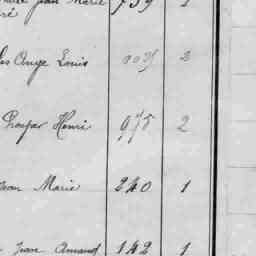 Jean Marie 759 1
ré
Ange Louis 2
Prosper Henri 975 2
Jean Marie 240 1
Jean Amand 142 1